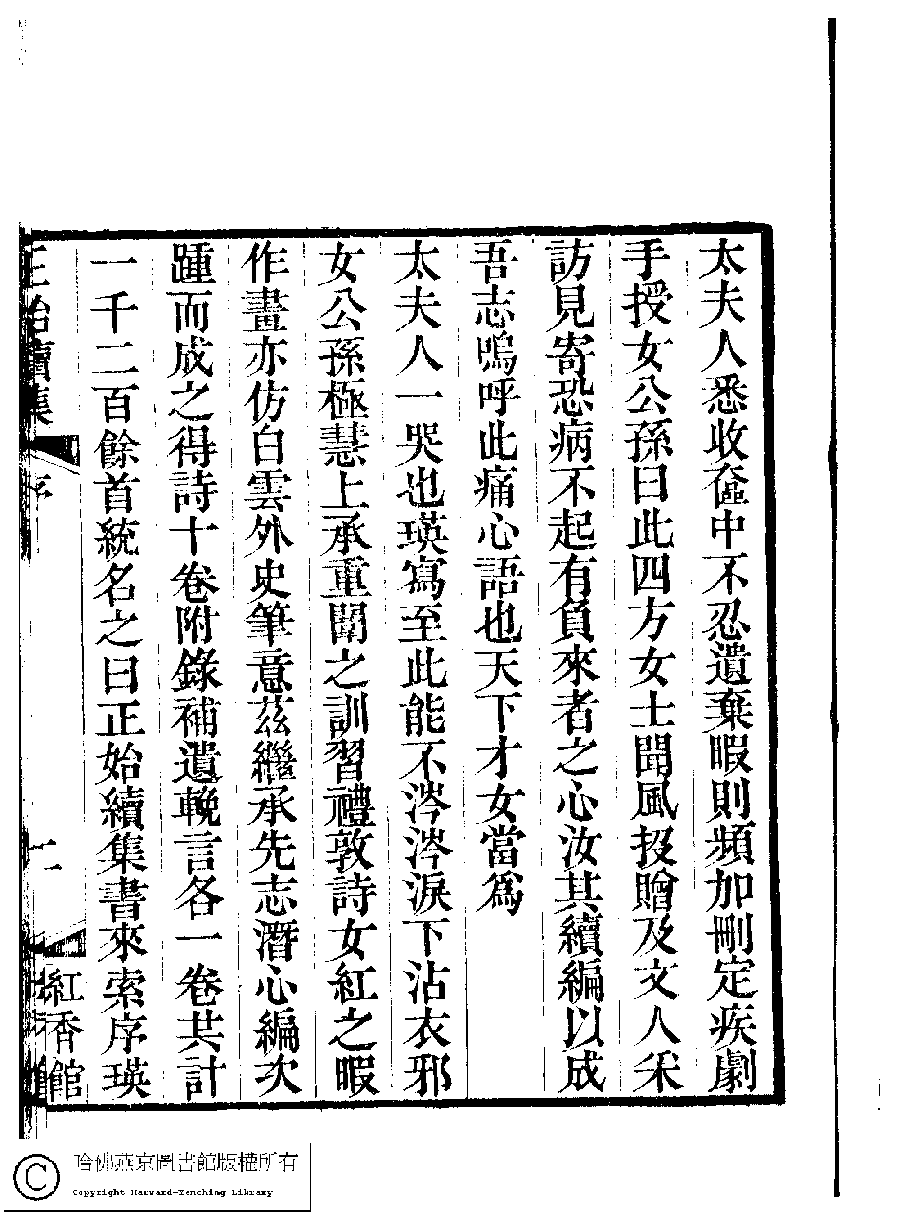 太夫人悉收奩中不忍遺棄暇則頻加刪定疾劇
手授女公孫曰此四方女士聞風投贈及文人采
訪見寄恐病不起有負來者之心汝其續編以成
吾志嗚呼此痛心語也天下才女當爲
太夫人一哭也瑛寫至此能不涔涔淚下沾衣邪
女公孫極慧上承重闈之訓習禮敦詩女紅之暇
作畫亦仿白雲外史筆意茲繼承先志潛心編次
踵而成之得詩十卷附錄補遺輓言各一卷共計
一千二百餘首統名之曰正始續集書來索序瑛
正始續集
序
二
紅香館
哈佛燕京圖書館版權所有
Copyright Harvard-Yenching Library